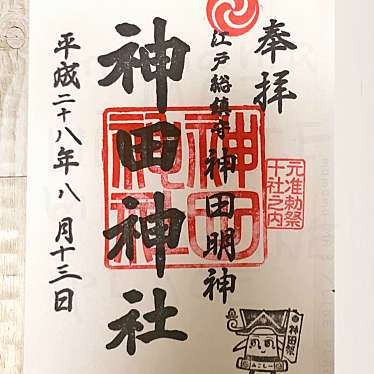 奉拝
江戸総鎮守 神田明神
神田神社
平成二十八年八月十三日
神田神社
元准勅祭
十社之内
神田祭
みこしー